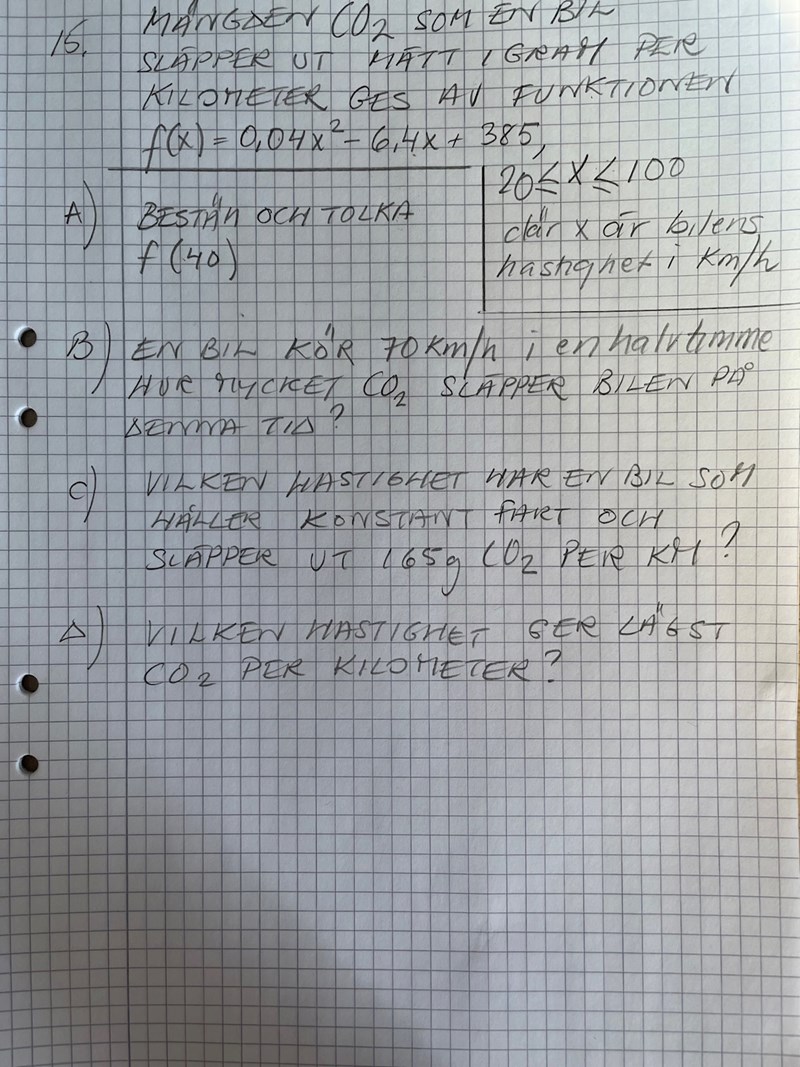 15. MÄNGDEN CO2 SOM EN BIL
SLÄPPER UT MÄTT I GRAM PER
KILOMETER GES AV FUNKTIONEN
f(x) = 0,04x² - 6,4x + 385,
20 ≤ x ≤ 100
där x är bilens
hastighet i km/h
A) BESTÄM OCH TOLKA
f(40)
B) EN BIL KÖR 70 km/h i en halvtimme
HUR MYCKET CO2 SLÄPPER BILEN PÅ
DENNA TID?
C) VILKEN HASTIGHET HAR EN BIL SOM
HÅLLER KONSTANT FART OCH
SLÄPPER UT 165g CO2 PER KM?
D) VILKEN HASTIGHET GER LÄGST
CO2 PER KILOMETER?